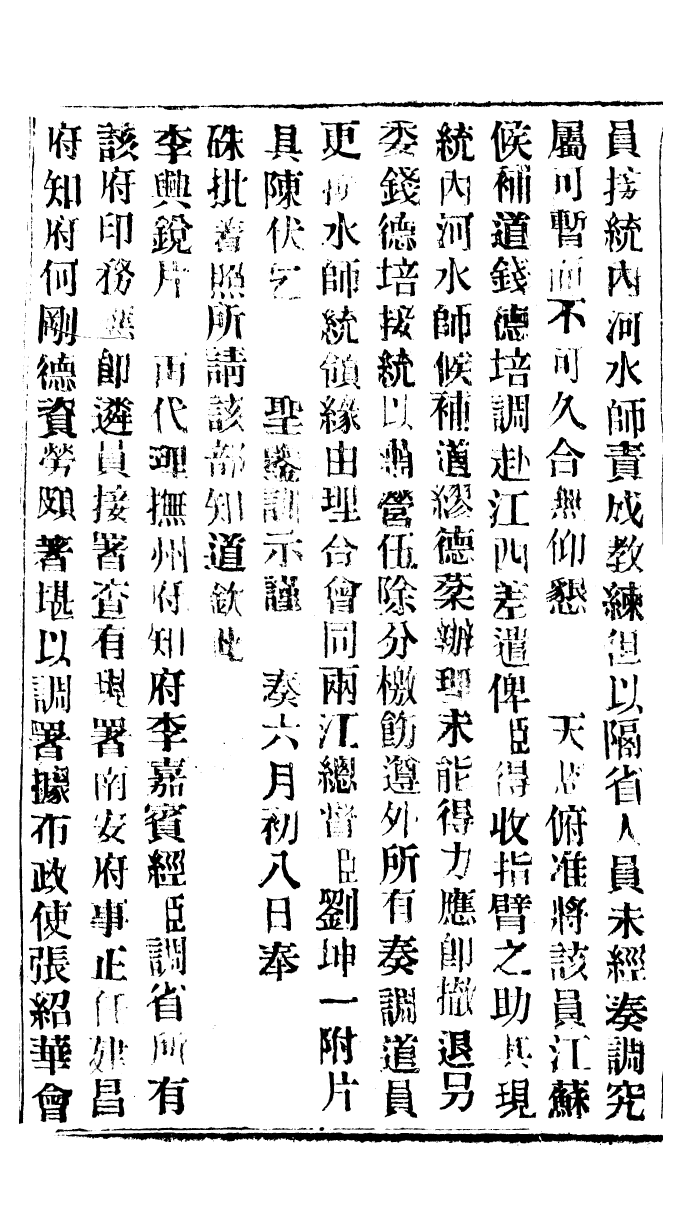 員接統內河水師責成教練但以隔省人員未經奏調究
屬可暫而不可久合無仰懇　天恩俯准將該員江蘇
候補道錢德培調赴江西差遣俾臣得收指臂之助其現
統內河水師候補道繆德棻辦理未能得力應即撤退另
委錢德培接統以肅營伍除分檄飭遵外所有奏調道員
更換水師統領緣由理合會同兩江總督臣劉坤一附片
具陳伏乞　聖鑒訓示謹　奏六月初八日奉
硃批著照所請該部知道欽此
李興銳片　再代理撫州府知府李嘉賓經臣調省所有
該府印務應即遴員接署查有現署南安府事正任建昌
府知府何剛德資勞頗著堪以調署據布政使張紹華會